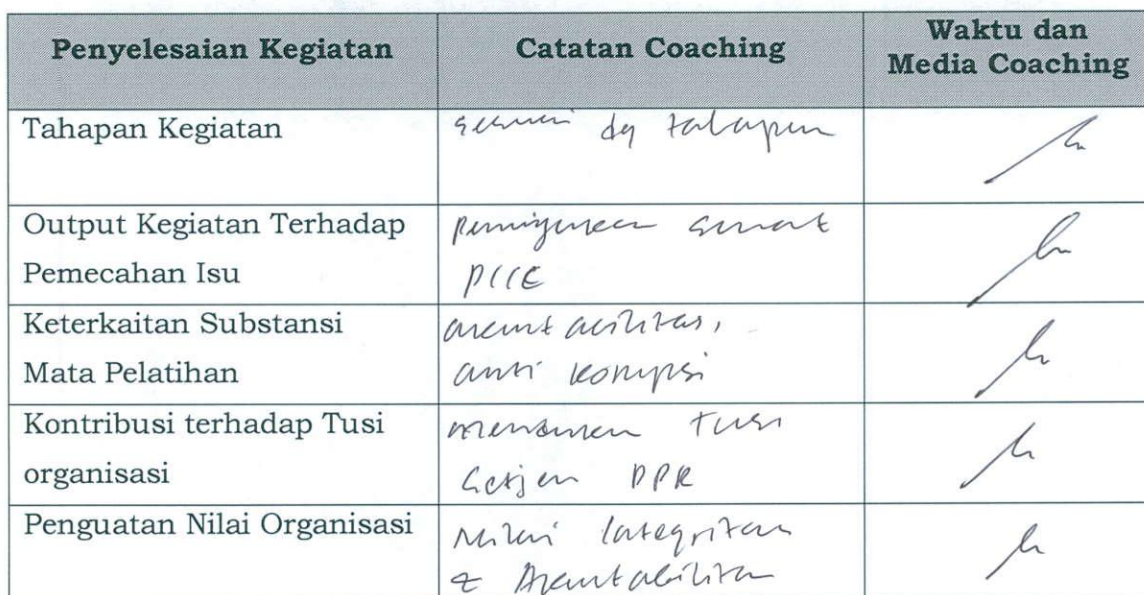 Penyelesaian Kegiatan
Catatan Coaching
Waktu dan
Media Coaching
Tahapan Kegiatan
sesuai dg tahapan
Output Kegiatan Terhadap
Pemecahan Isu
Keterkaitan Substansi
Mata Pelatihan
akuntabilitas,
anti korupsi
Kontribusi terhadap Tusi
organisasi
tusi
Setjen DPR
Penguatan Nilai Organisasi
Nilai Integritas
& Akuntabilitas